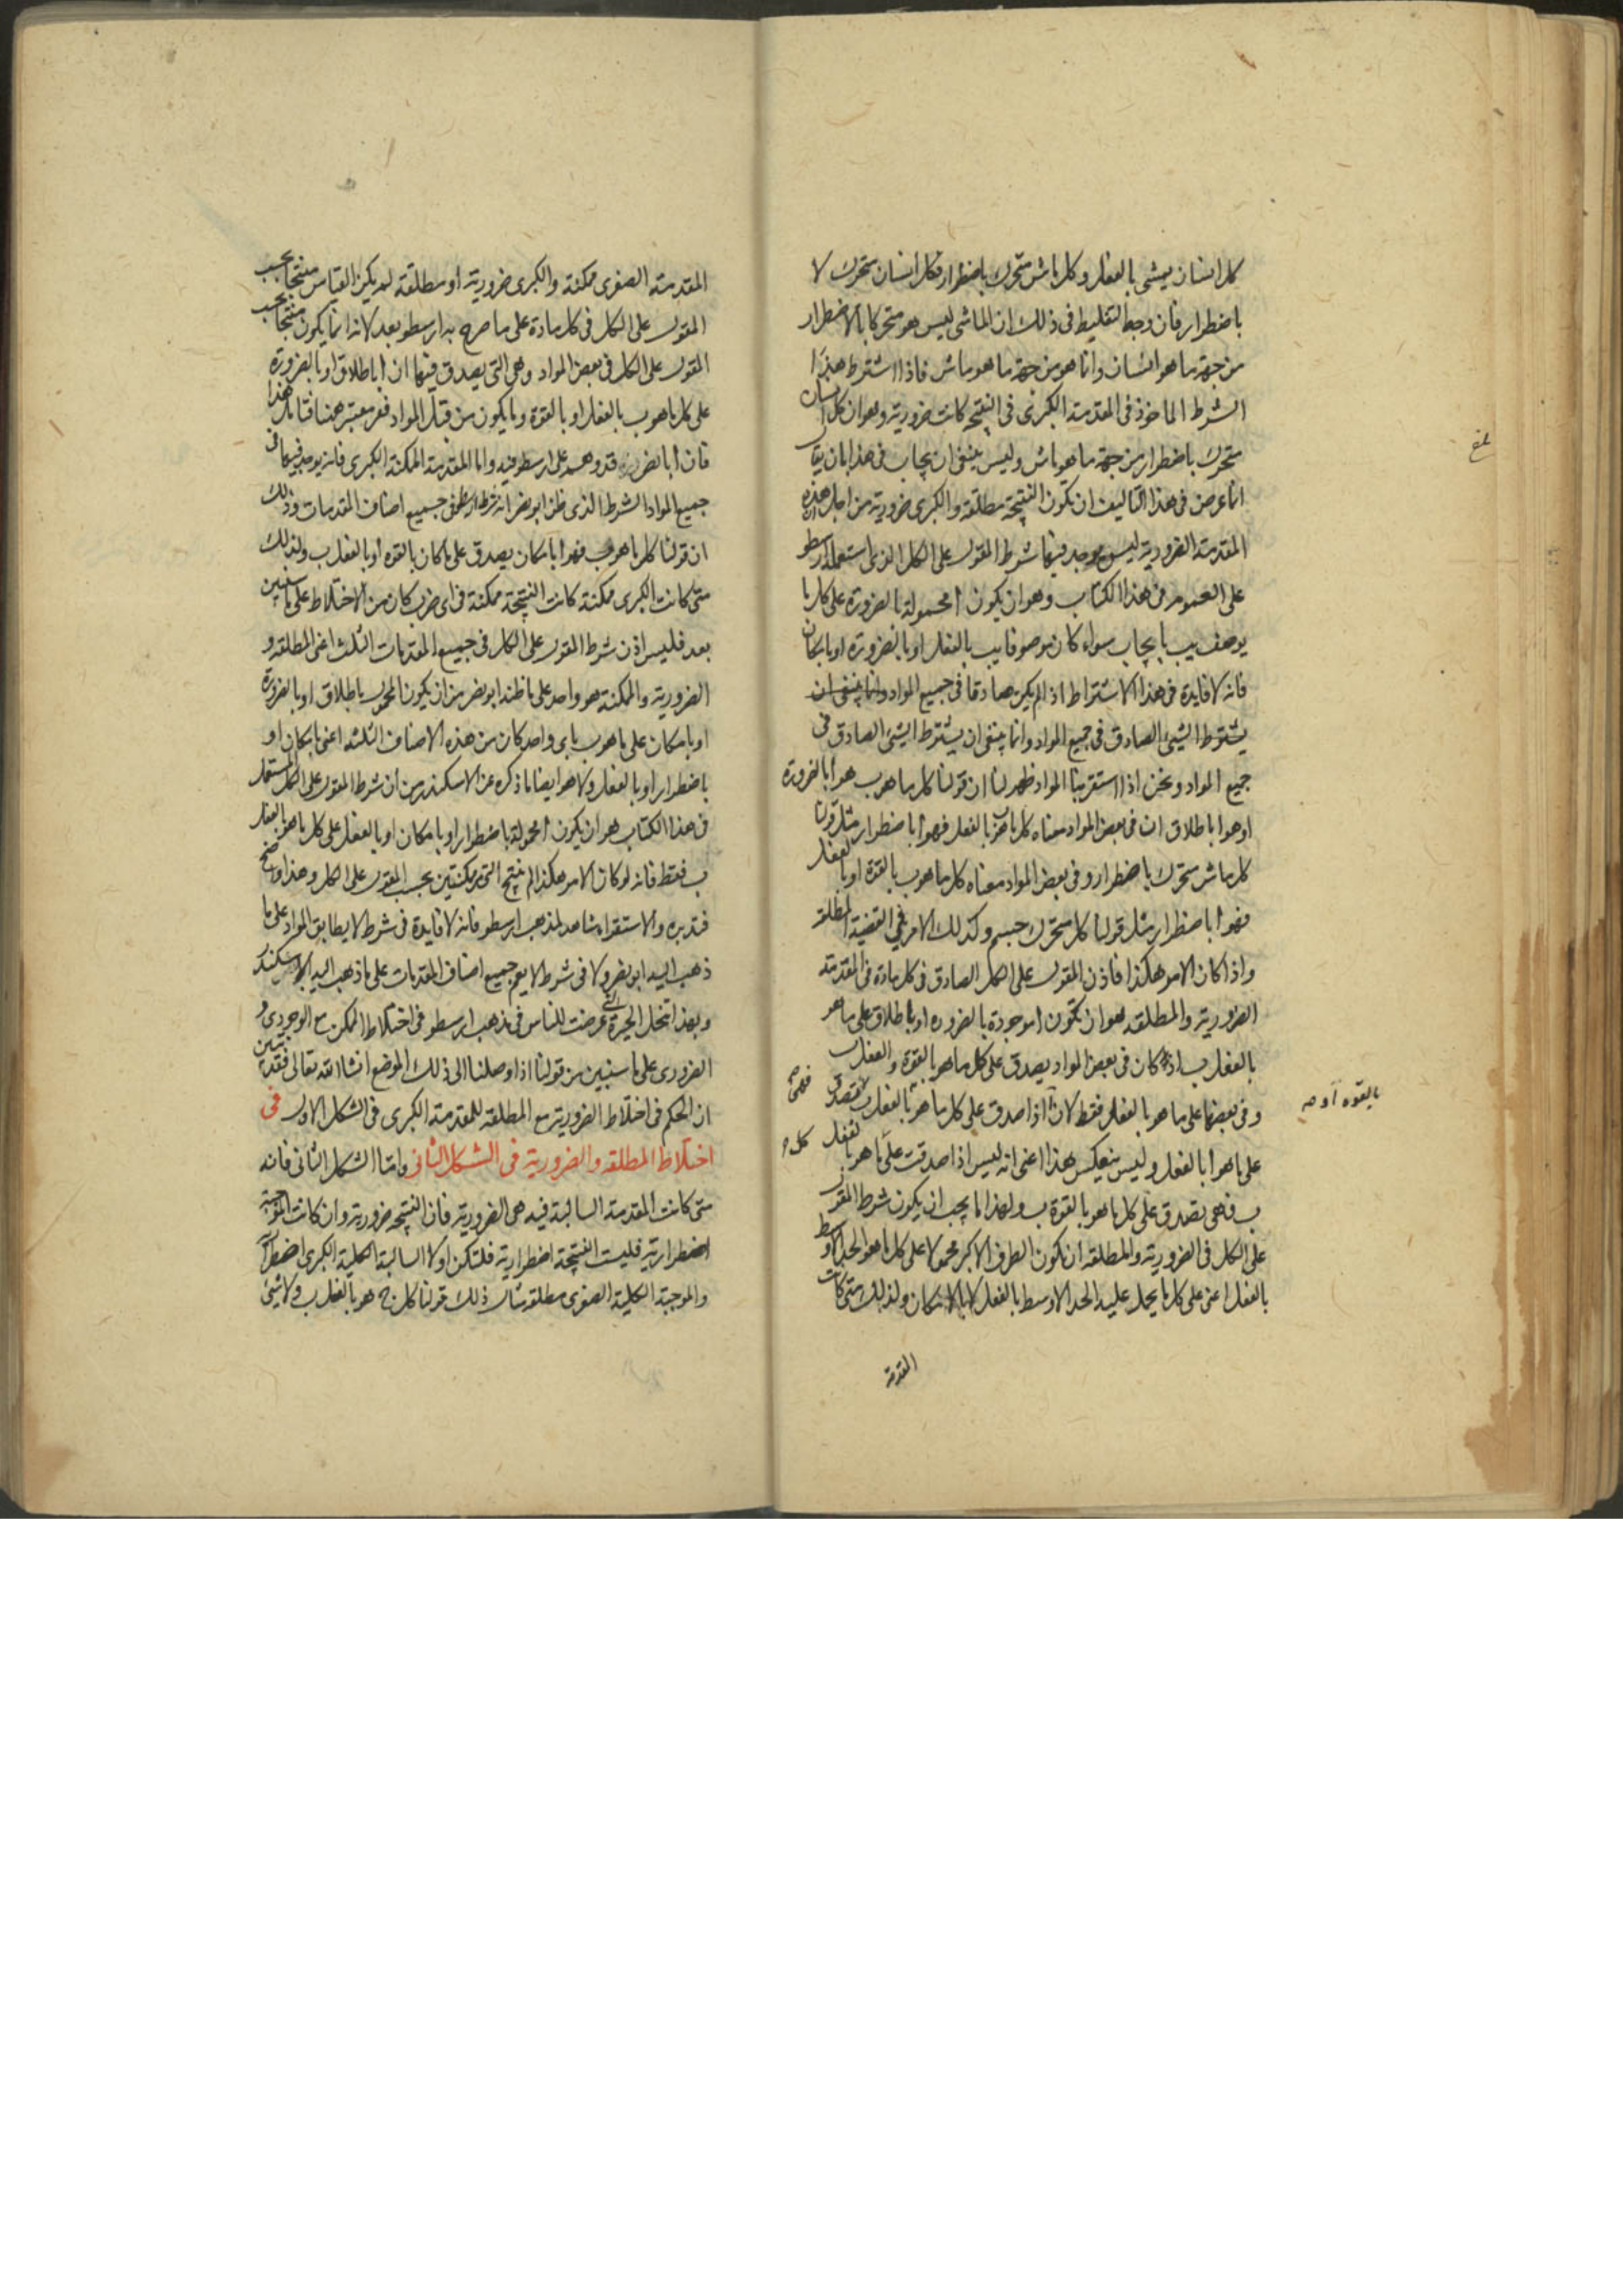 كل انسان يمشى بالفعل وكل ماش متحرك باضطرار فكل انسان متحرك لا
باضطرار فان وجه التغليط فى ذلك ان الماشى ليس هو متحركا بالاضطرار
من جهة ما هو انسان وانما هو من جهة ما هو ماش فاذا اشترط هذا
الشرط الماخوذ فى المقدمة الكبرى فى النتيجة كانت ضرورية وهو ان كل انسان
متحرك باضطرار من جهة ما هو ماش وليس ينبغى ان يجاب فى هذا بان يقال
انما عرض فى هذا التاليف ان تكون النتيجة مطلقة والكبرى ضرورية من اجل ان هذه
المقدمة الضرورية ليس يوجد فيها شرط المقول على الكل الذى استعمله ارسطو
على العموم فى هذا الكتاب وهو ان يكون ا محمولة بالضرورة على كل ما
يوصف بب بايجاب سواء كان موصوفا بب بالفعل او بالضرورة او بامكان
فانه لا فايدة فى هذا الاشتراط اذا لم يكن صادقا فى جميع المواد وانما ينبغى ان
يشترط الشيئ الصادق فى جميع المواد وانما ينبغى ان يشترط الشيئ الصادق فى
جميع المواد ونحن اذا استقرينا المواد ظهر لنا ان قولنا كل ما هو ب هو ا بالضرورة
او هو ا باطلاق ان فى بعض المواد معناه كل ما هو ب بالفعل فهو ا باضطرار مثل قولنا
كل ماش متحرك باضطرار وفى بعض المواد معناه كل ما هو ب بالقوة او بالفعل
فهو ا باضطرار مثل قولنا كل متحرك جسم وكذلك الامر فى القضية المطلقة
واذا كان الامر هكذا فاذن المقول على الكل الصادق فى كل مادة فى المقدمة
الضرورية والمطلقة هو ان تكون ا موجودة بالضرورة او باطلاق على ما هو
بالفعل ب اذ كان فى بعض المواد يصدق على كل ما هو بالقوة والفعل ب
وفى بعضها على ما هو بالفعل فقط لان ا اذا صدق على كل ما هو بالفعل ب
على ما هو ا بالفعل وليس ينعكس هذا اعنى انه ليس اذا صدقت على ما هو بالفعل
ب فهى تصدق على كل ما هو بالقوة ب ولهذا ما يجب ان يكون شرط المقول
على الكل فى الضرورية والمطلقة ان تكون الطرف الاكبر محمولا على كل ما هو الحد الاوسط
بالفعل اعنى على كل ما يحمل عليه الحد الاوسط بالفعل لا بالامكان ولذلك متى كانت
المقدمة
بالقوة او
المقدمة الصغرى ممكنة والكبرى ضرورية او مطلقة لم يكن القياس منتجا بحسب
المقول على الكل فى كل مادة على ما صرح به ارسطو بعد لانه انما يكون منتجا بحسب
المقول على الكل فى بعض المواد وهى التى يصدق فيها ان ا باطلاق او بالضرورة
على كل ما هو ب بالفعل او بالقوة وما يكون من قبل المواد فغير معتبر هنا فتامل هذا
فان ابا نصر قد وهم على ارسطو فيه واما المقدمة الممكنة الكبرى فانه يوجد فيها فى
جميع المواد الشرط الذى ظن ابو نصر انه شرط ارسطو فى جميع اصناف المقدمات وذلك
ان قولنا كل ما هو ب فهو ا بامكان يصدق على ما كان بالقوة او بالفعل ب ولذلك
متى كانت الكبرى ممكنة كانت النتيجة ممكنة فى اى ضرب كان من الاختلاط على ما سنبين
بعد فليس اذن شرط المقول على الكل فى جميع المقدمات الثلث اعنى المطلقة و
الضرورية والممكنة هو واحد على ما ظنه ابو نصر من ان يكون المحمول باطلاق او بالضرورة
او بامكان على ما هو ب باى واحد كان من هذه الاصناف الثلثه اعنى بامكان او
باضطرار او بالفعل ولا هو ايضا ما ذكره عن الاسكندر من ان شرط المقول على الكل المستعمل
فى هذا الكتاب هو ان يكون ا محمولة باضطرار او بامكان او بالفعل على كل ما هو بالفعل
ب فقط فانه لو كان الامر هكذا لم ينتج التى من ممكنتين بحسب المقول على الكل وهذا واضح
فتدبره والاستقراء شاهد لمذهب ارسطو فانه لا فايدة فى شرط لا يطابق المواد على ما
ذهب اليه ابو نصر ولا فى شرط لا يعم جميع اصناف المقدمات على ما ذهب اليه الاسكندر
وبهذا تنحل الحيرة التى عرضت للناس فى مذهب ارسطو فى اختلاط الممكن مع الوجودى و
الضرورى على ما سنبين من قولنا اذا وصلنا الى ذلك الموضع انشا الله تعالى فقد تبين
ان الحكم فى اختلاط الضرورية مع المطلقة للمقدمة الكبرى فى الشكل الاول فى
اختلاط المطلقه والضرورية فى الشكل الثانى واما الشكل الثانى فانه
متى كانت المقدمة السالبة فيه هى الضرورية فان النتيجة ضرورية وان كانت الموجبة
اضطرارية فليست النتيجة اضطرارية فلتكن اولا السالبة الكلية الكبرى اضطرارية
والموجبة الكلية الصغرى مطلقة مثال ذلك قولنا كل ج هو بالفعل ب ولا شيئ